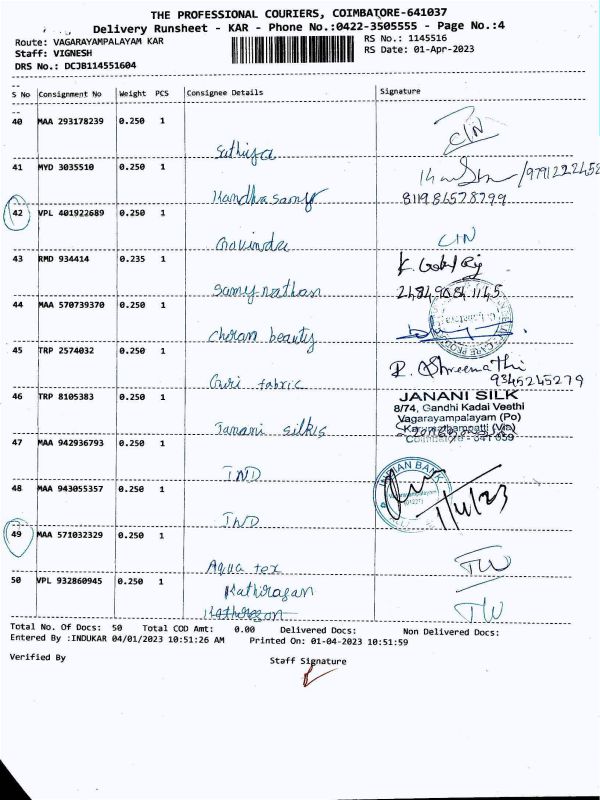 THE PROFESSIONAL COURIERS, COIMBATORE-641037
Delivery Runsheet - KAR - Phone No.:0422-3505555 - Page No.:4
Route: VAGARAYAMPALAYAM KAR
RS No.: 1145516
Staff: VIGNESH
RS Date: 01-Apr-2023
DRS No.: DCJB114551604
S No Consignment No Weight PCS Consignee Details Signature
40 MAA 293178239 0.250 1
Sathiya CIN
41 MYD 3035510 0.250 1
Kandhasamy
42 VPL 401922689 0.250 1
Govinda CIN
43 RMD 934414 0.235 1
Samynathan
44 MAA 570739370 0.250 1
Cheran beauty
45 TRP 2574032 0.250 1
R. Shreemathi
Guri fabric 9345245279
46 TRP 8105383 0.250 1
JANANI SILK
8/74, Gandhi Kadai Veethi
Vagarayampalayam (Po)
Janani silks Karumathampatti (Via)
Coimbatore - 641 659
47 MAA 942936793 0.250 1
IND INDIAN BANK
48 MAA 943055357 0.250 1
IND 1/4/23
49 MAA 571032329 0.250 1
Aqua tex TW
50 VPL 932860945 0.250 1
Kathiragan
TW
Total No. Of Docs: 50 Total COD Amt: 0.00 Delivered Docs: Non Delivered Docs:
Entered By :INDUKAR 04/01/2023 10:51:26 AM Printed On: 01-04-2023 10:51:59
Verified By
Staff Signature